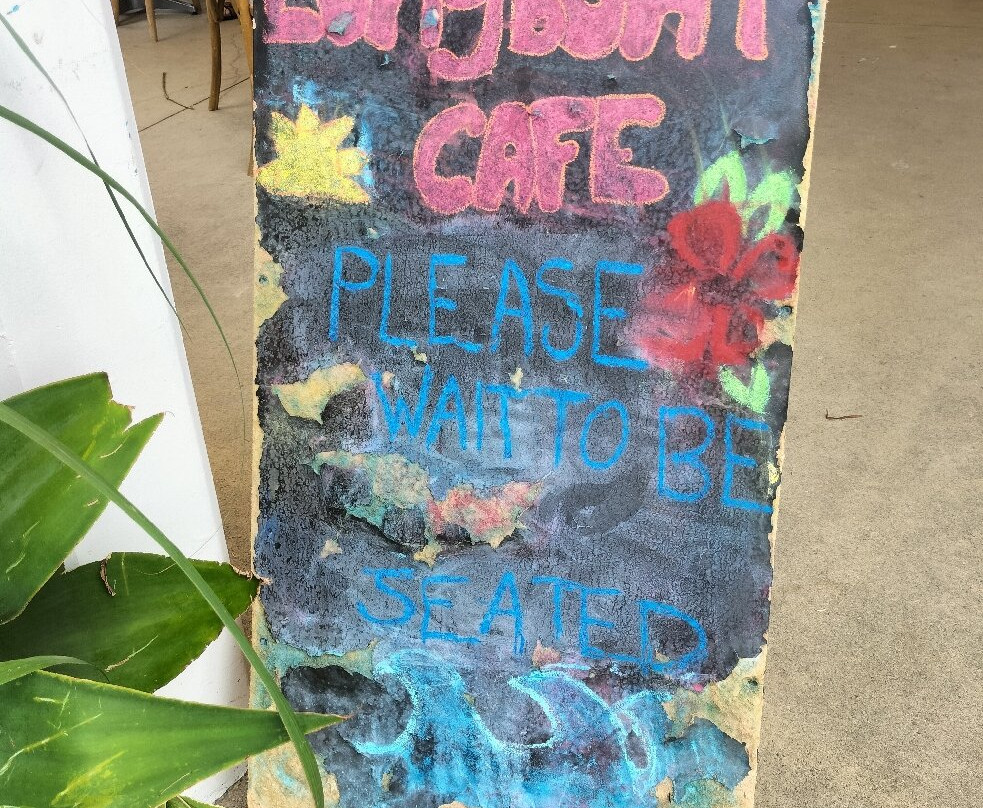 Longboat
CAFE
PLEASE
WAIT TO BE
SEATED